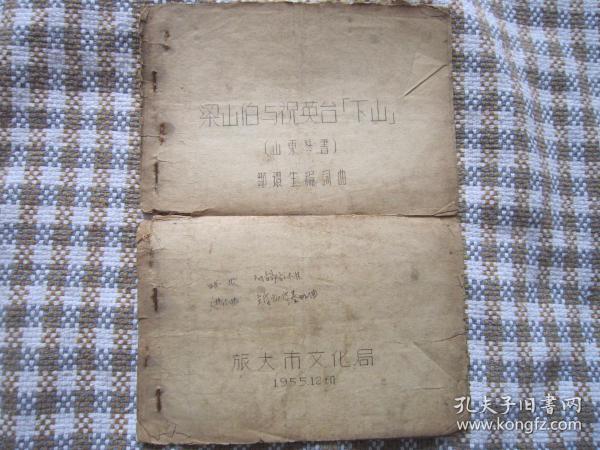 梁山伯与祝英台「下山」
(山東琴書)
鄒環生編詞曲
旅大市文化局
1955.12印
孔夫子旧書网
www.kongfz.com